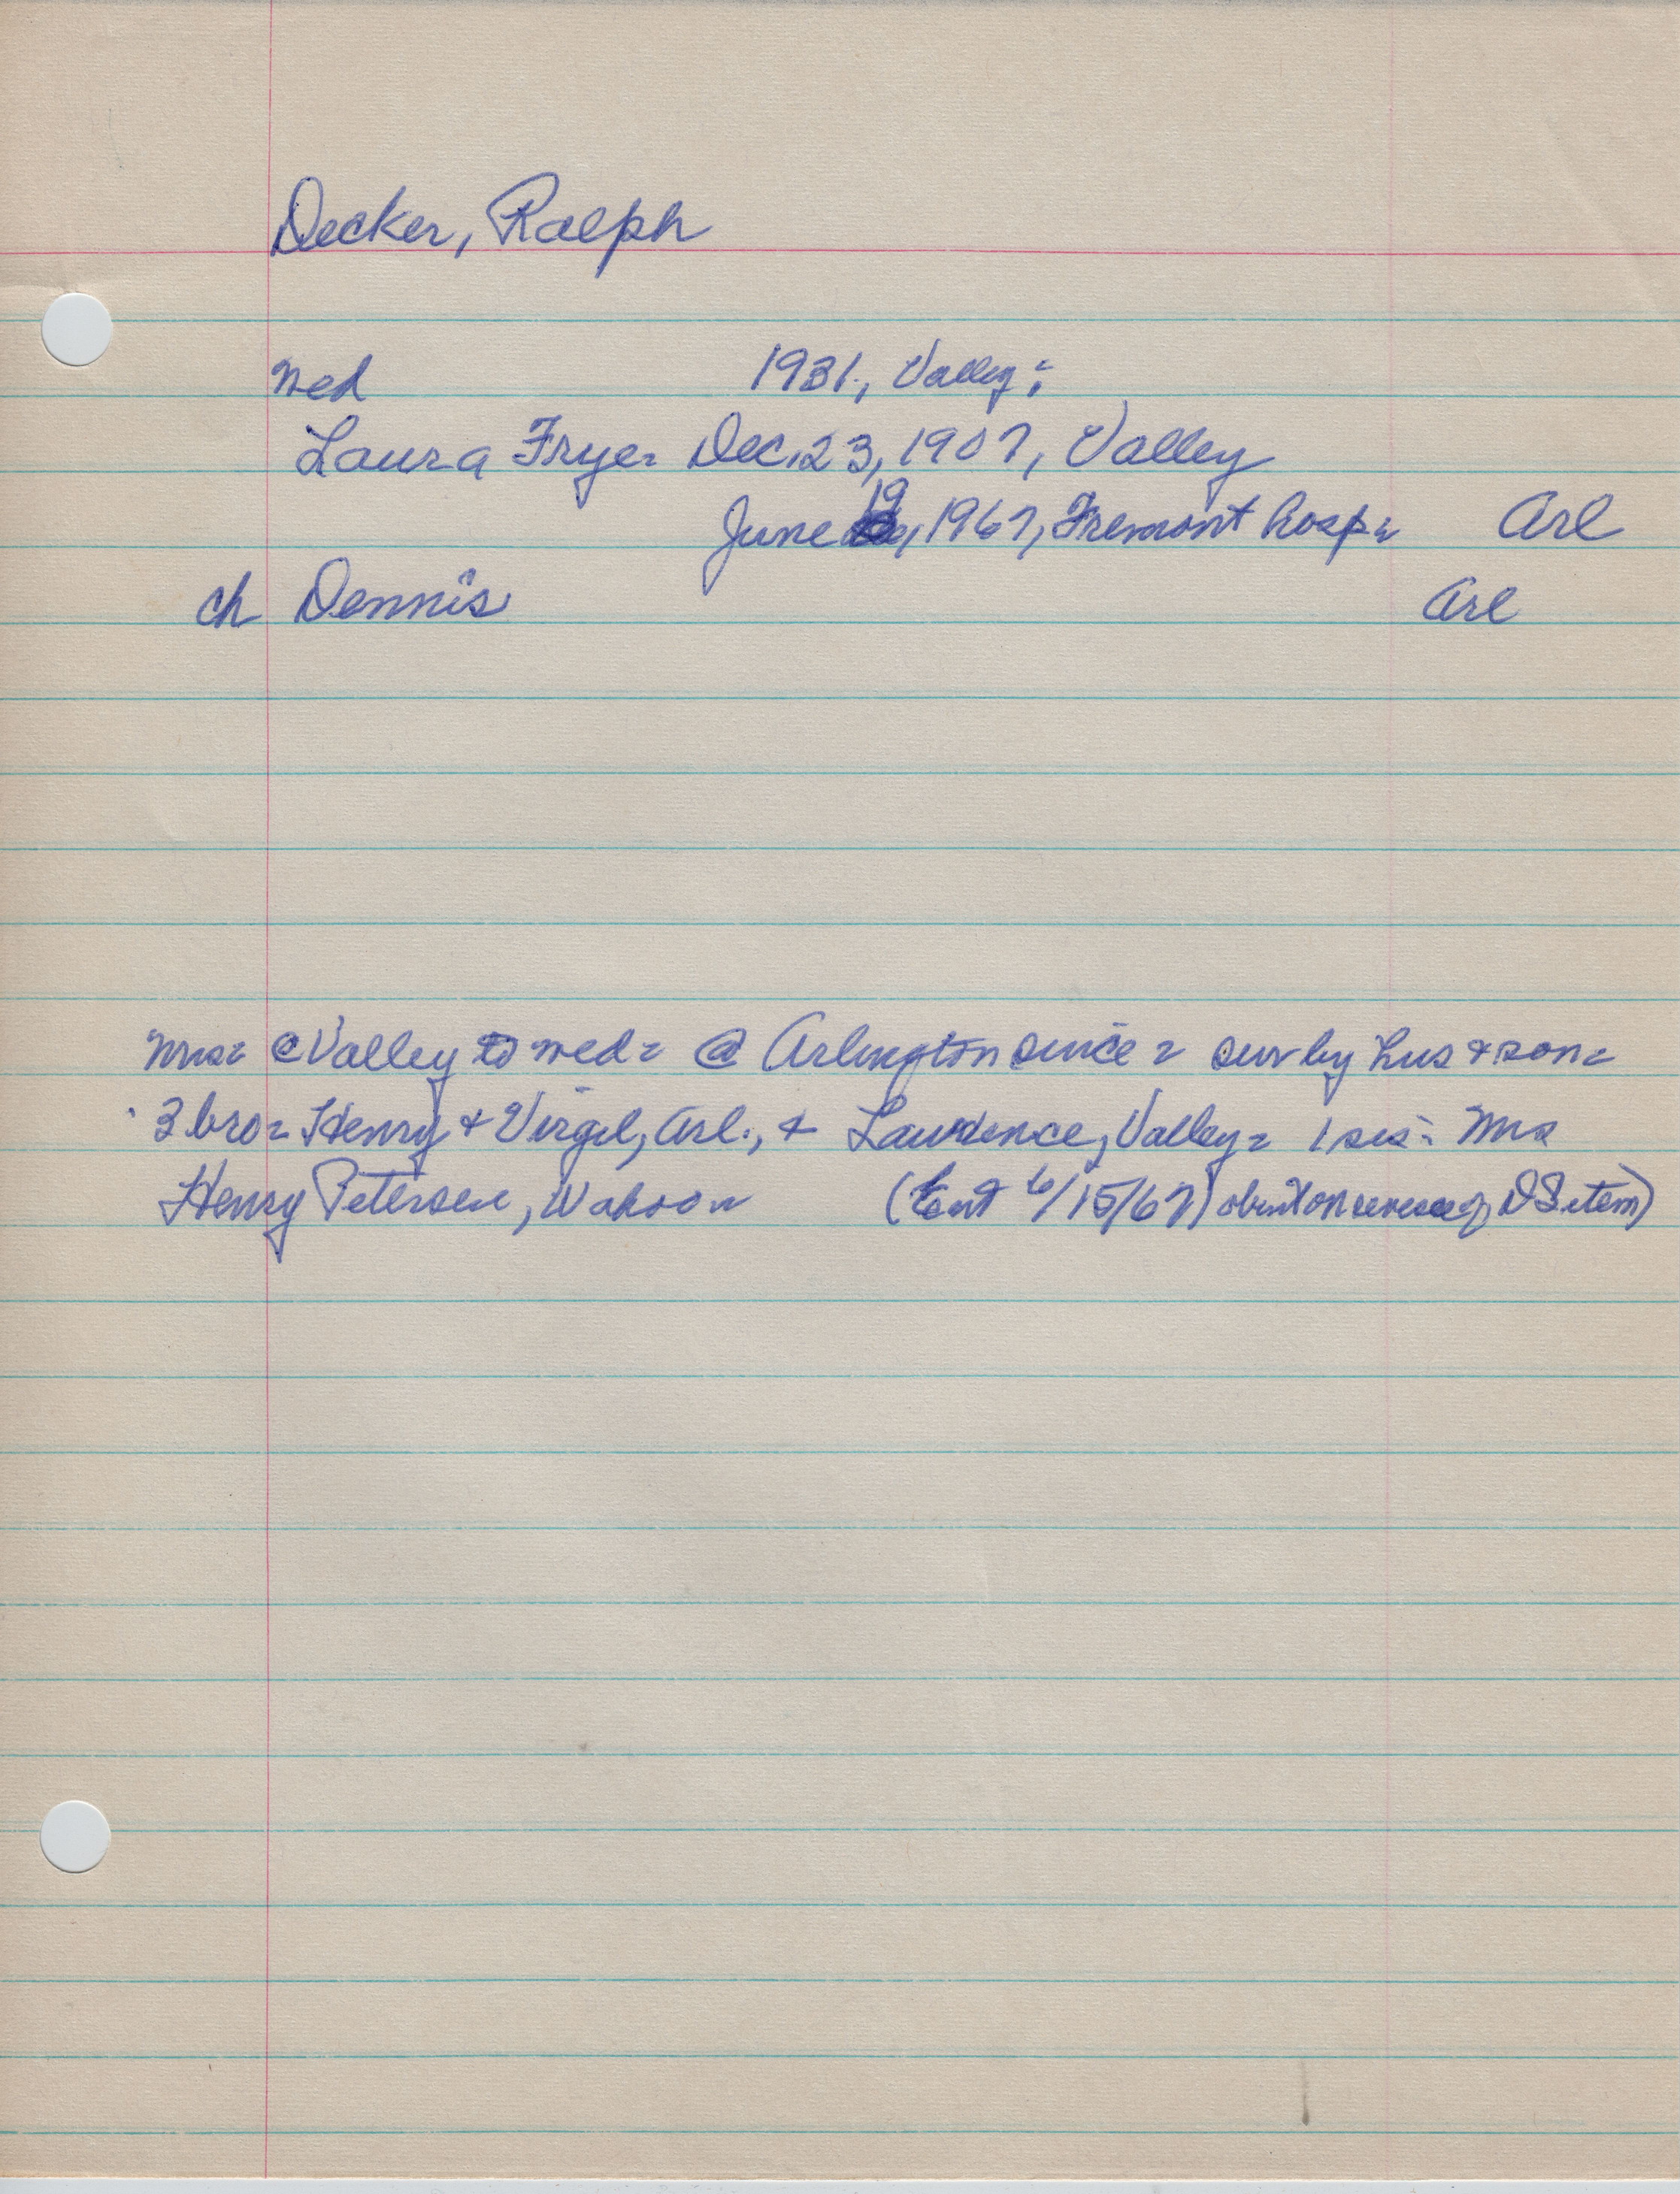 Decker, Ralph
med 1931., Valley;
Laura Frye= Dec. 23, 1907, Valley
June 19, 1967, Fremont hosp= Arl
ch Dennis Arl
Mrs= @ Valley to med= @ Arlington since= sur by hus + son=
3 bro= Henry + Virgil, Arl., + Lawrence, Valley= 1 sis= Mrs
Henry Petersen, Wahoo= (Ent 6/15/67) obit on reverse of DS item)